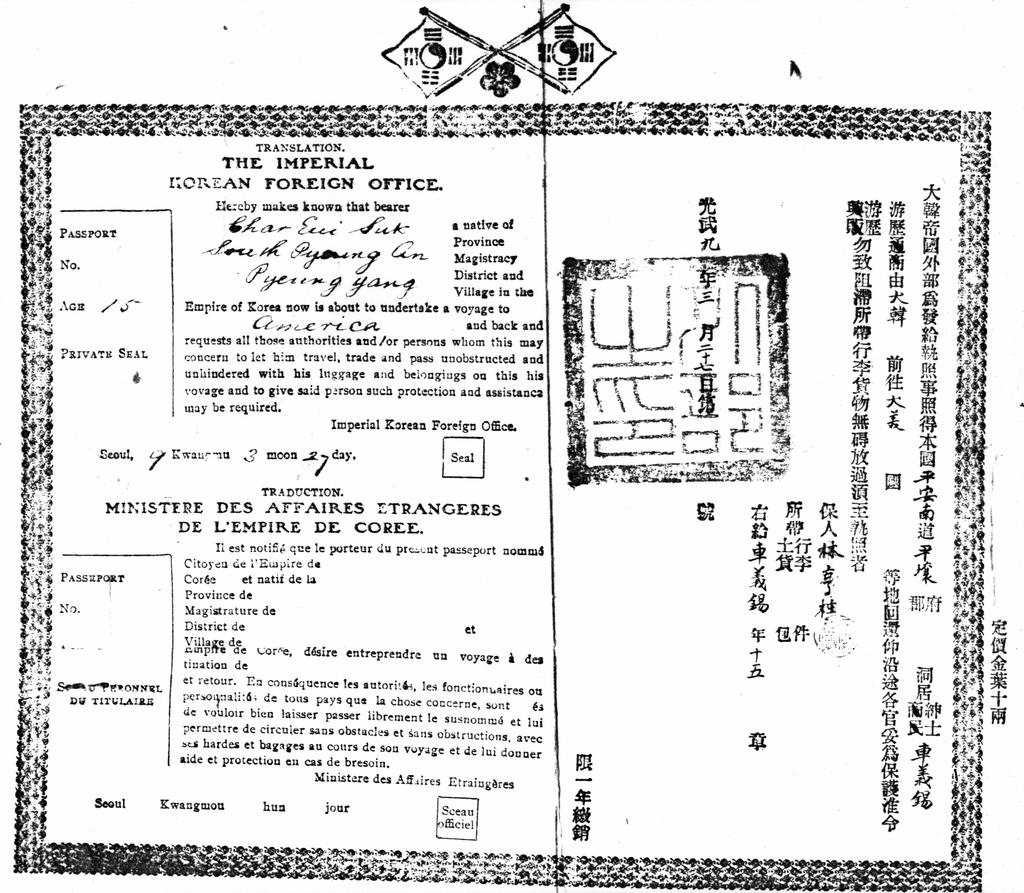 TRANSLATION.
THE IMPERIAL
KOREAN FOREIGN OFFICE.
Hereby makes known that bearer
PASSPORT
No.
AGE 15
PRIVATE SEAL
Char Eui Suk a native of
South Pyeung An Province
Magistracy
Pyeung yang District and
Village in the
Empire of Korea now is about to undertake a voyage to
America and back and
requests all those authorities and/or persons whom this may
concern to let him travel, trade and pass unobstructed and
unhindered with his luggage and belongings on this his
voyage and to give said person such protection and assistance
may be required.
Imperial Korean Foreign Office.
Seoul, 9 Kwangmu 3 moon 27 day.
Seal
TRADUCTION.
MINISTERE DES AFFAIRES ETRANGERES
DE L'EMPIRE DE COREE.
Il est notifié que le porteur du present passeport nommé
PASSEPORT
No.
SCEAU PERONNEL
DU TITULAIRE
Citoyen de l'Empire de
Corée et natif de la
Province de
Magistrature de
District de et
Village de
Empire de Corée, désire entreprendre un voyage à des
tination de
et retour. En conséquence les autorités, les fonctionnaires ou
personnalités de tous pays que la chose concerne, sont és
de vouloir bien laisser passer librement le susnommé et lui
permettre de circuler sans obstacles et sans obstructions, avec
ses hardes et bagages au cours de son voyage et de lui donner
aide et protection en cas de bresoin.
Ministere des Affaires Etraingères
Seoul Kwangmou hun jour
Sceau
officiel
定價金葉十兩
大韓帝國外部爲發給執照事照得本國平安南道平壤府郡 洞居紳士商民車義錫
游歷通商由大韓 前往大美 國 等地回還仰沿途各官妥爲保護准令
游歷興販勿致阻滯所帶行李貨物無碍放過須至執照者
保人林亨柱
所帶行李土貨 件包
右給車義錫 年十五 章
光武九年三月二十七日第 號
限一年繳銷